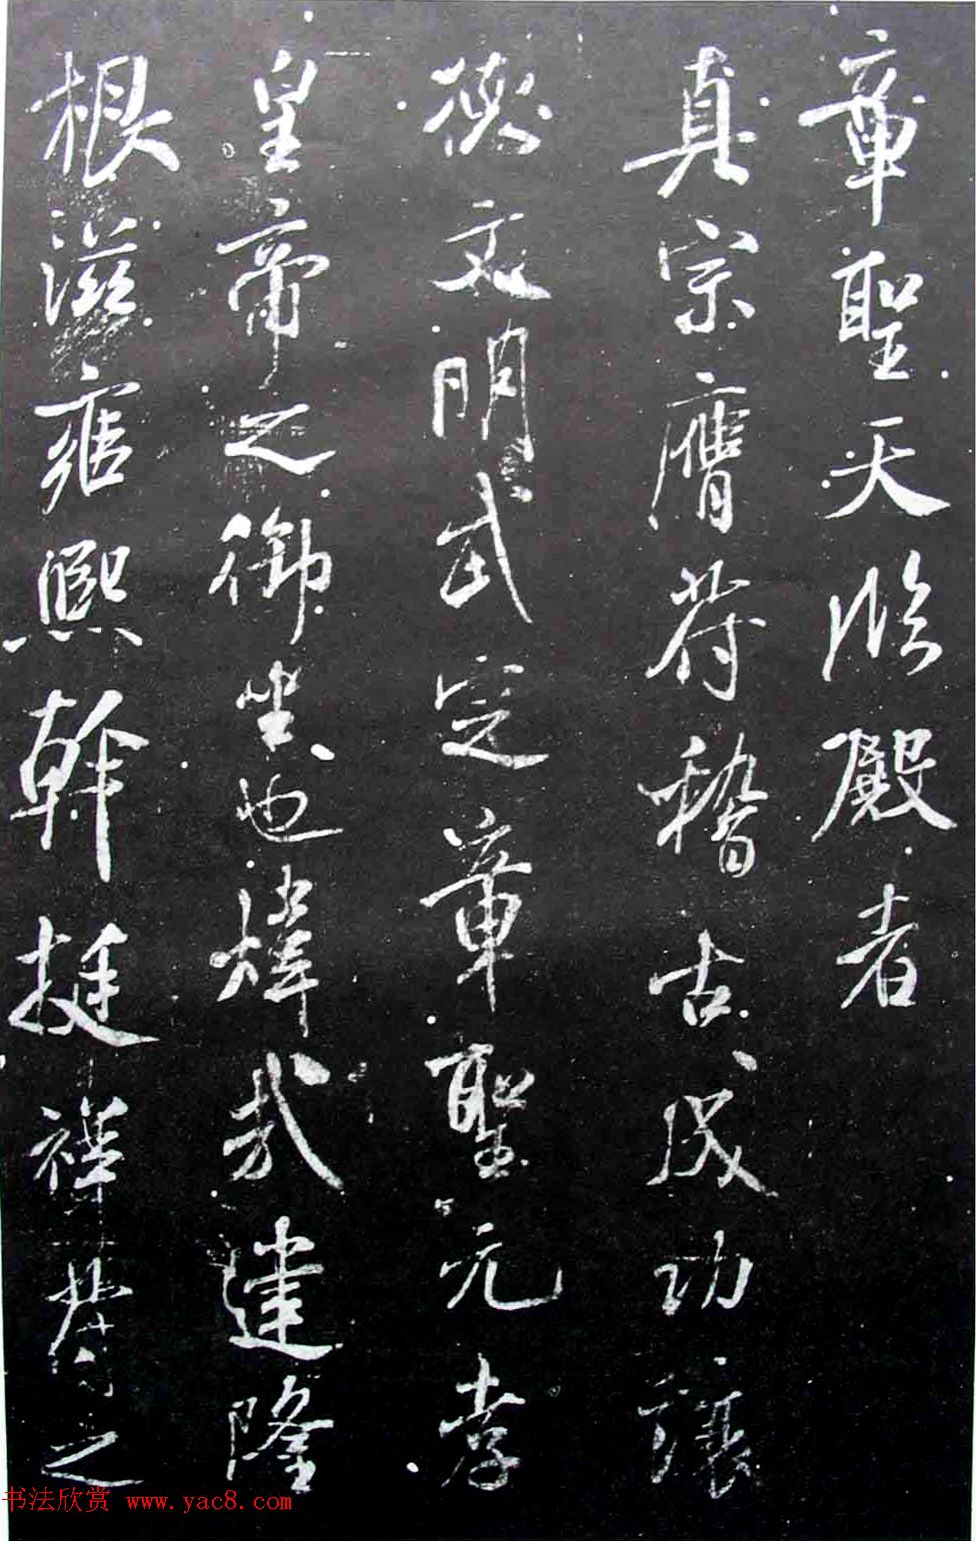 章聖天臨殿者
真宗膺符稽古成功讓
德文明武定章聖元孝
皇帝之御坐也煒哉建隆
根滋雍熙幹挺祥符之
书法欣赏 www.yac8.com